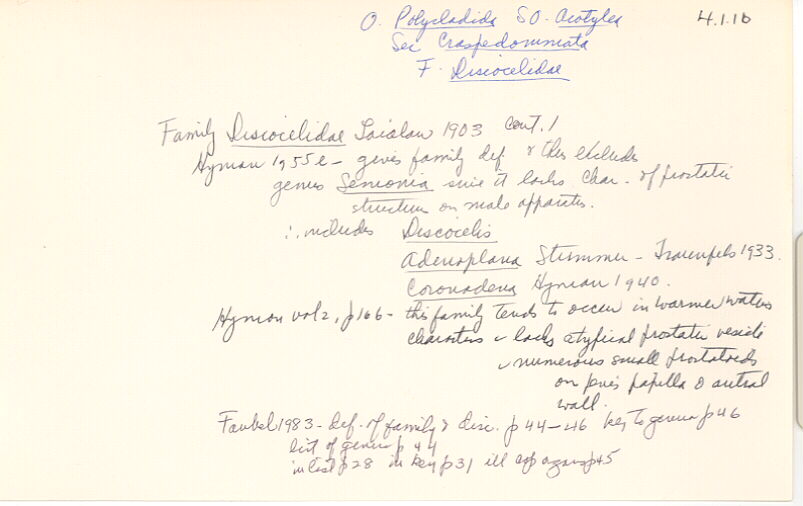 O. Polycladida SO. Acotylea
4.1.1b
Sec Craspedommata
F. Discocelidae
Family Discocelidae Laidlaw 1903 cont. 1
Hyman 1955e - gives family def & thus excludes
genus Semonia since it lacks char. of prostatic
structure on male apparatus.
∴ includes Discocelis
Adenoplana Stummer-Traunfels 1933.
Coronadena Hyman 1940.
Hyman vol 2, p166 - this family tends to occur in warmer waters
characters lacks atypical prostatic vesicle
numerous small prostatoids
on penis papilla & antral
wall.
Faubel 1983 - def. of family & disc. p 44-46 key to genera p46
list of genera p 44
in list p28 in key p31 ill cop p45